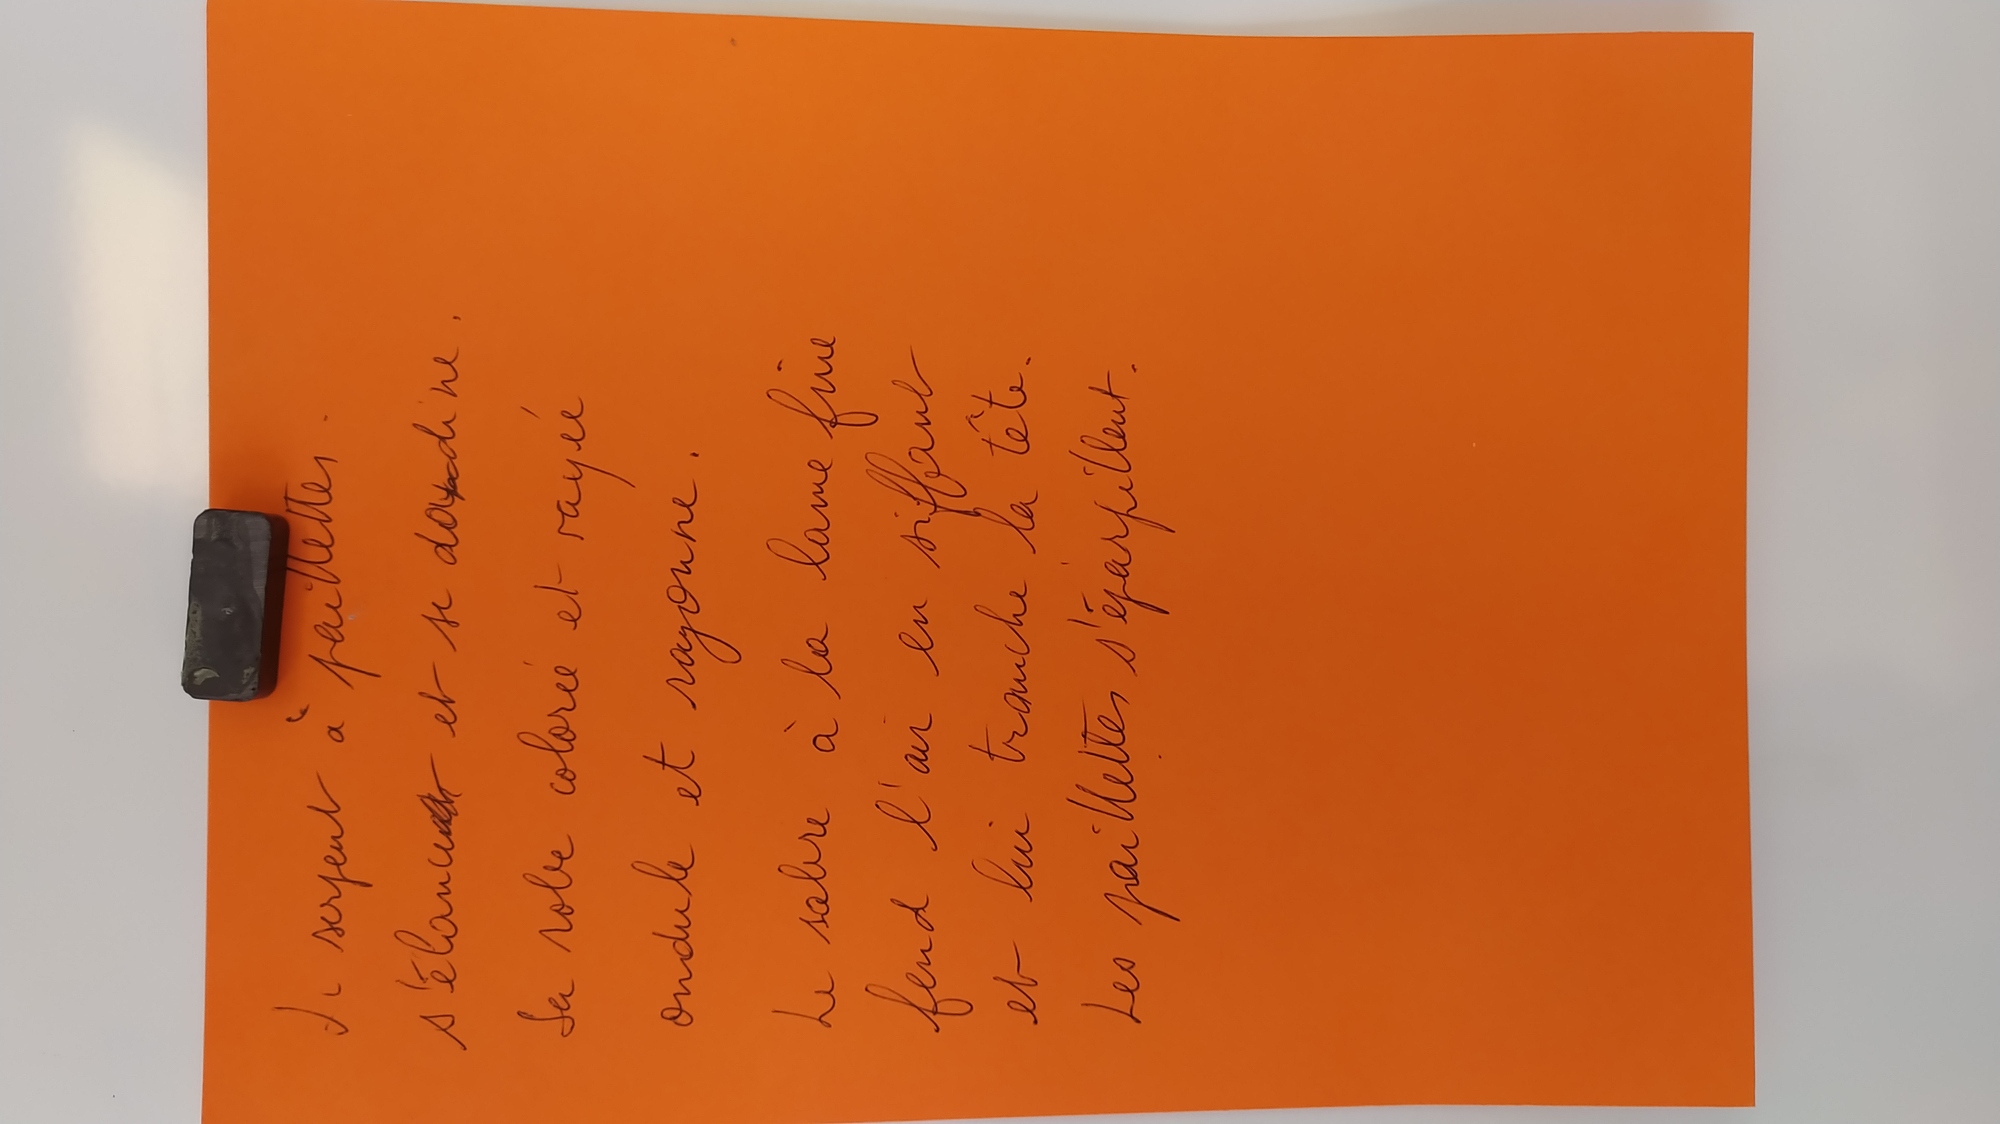 Le serpent à paillettes.
s'élance et se dandine.
Sa robe colorée et rayée
ondule et rayonne.
Le sabre à la lame fine
fend l'air en siffant
et lui tranche la tête.
Les paillettes s'éparpillent.